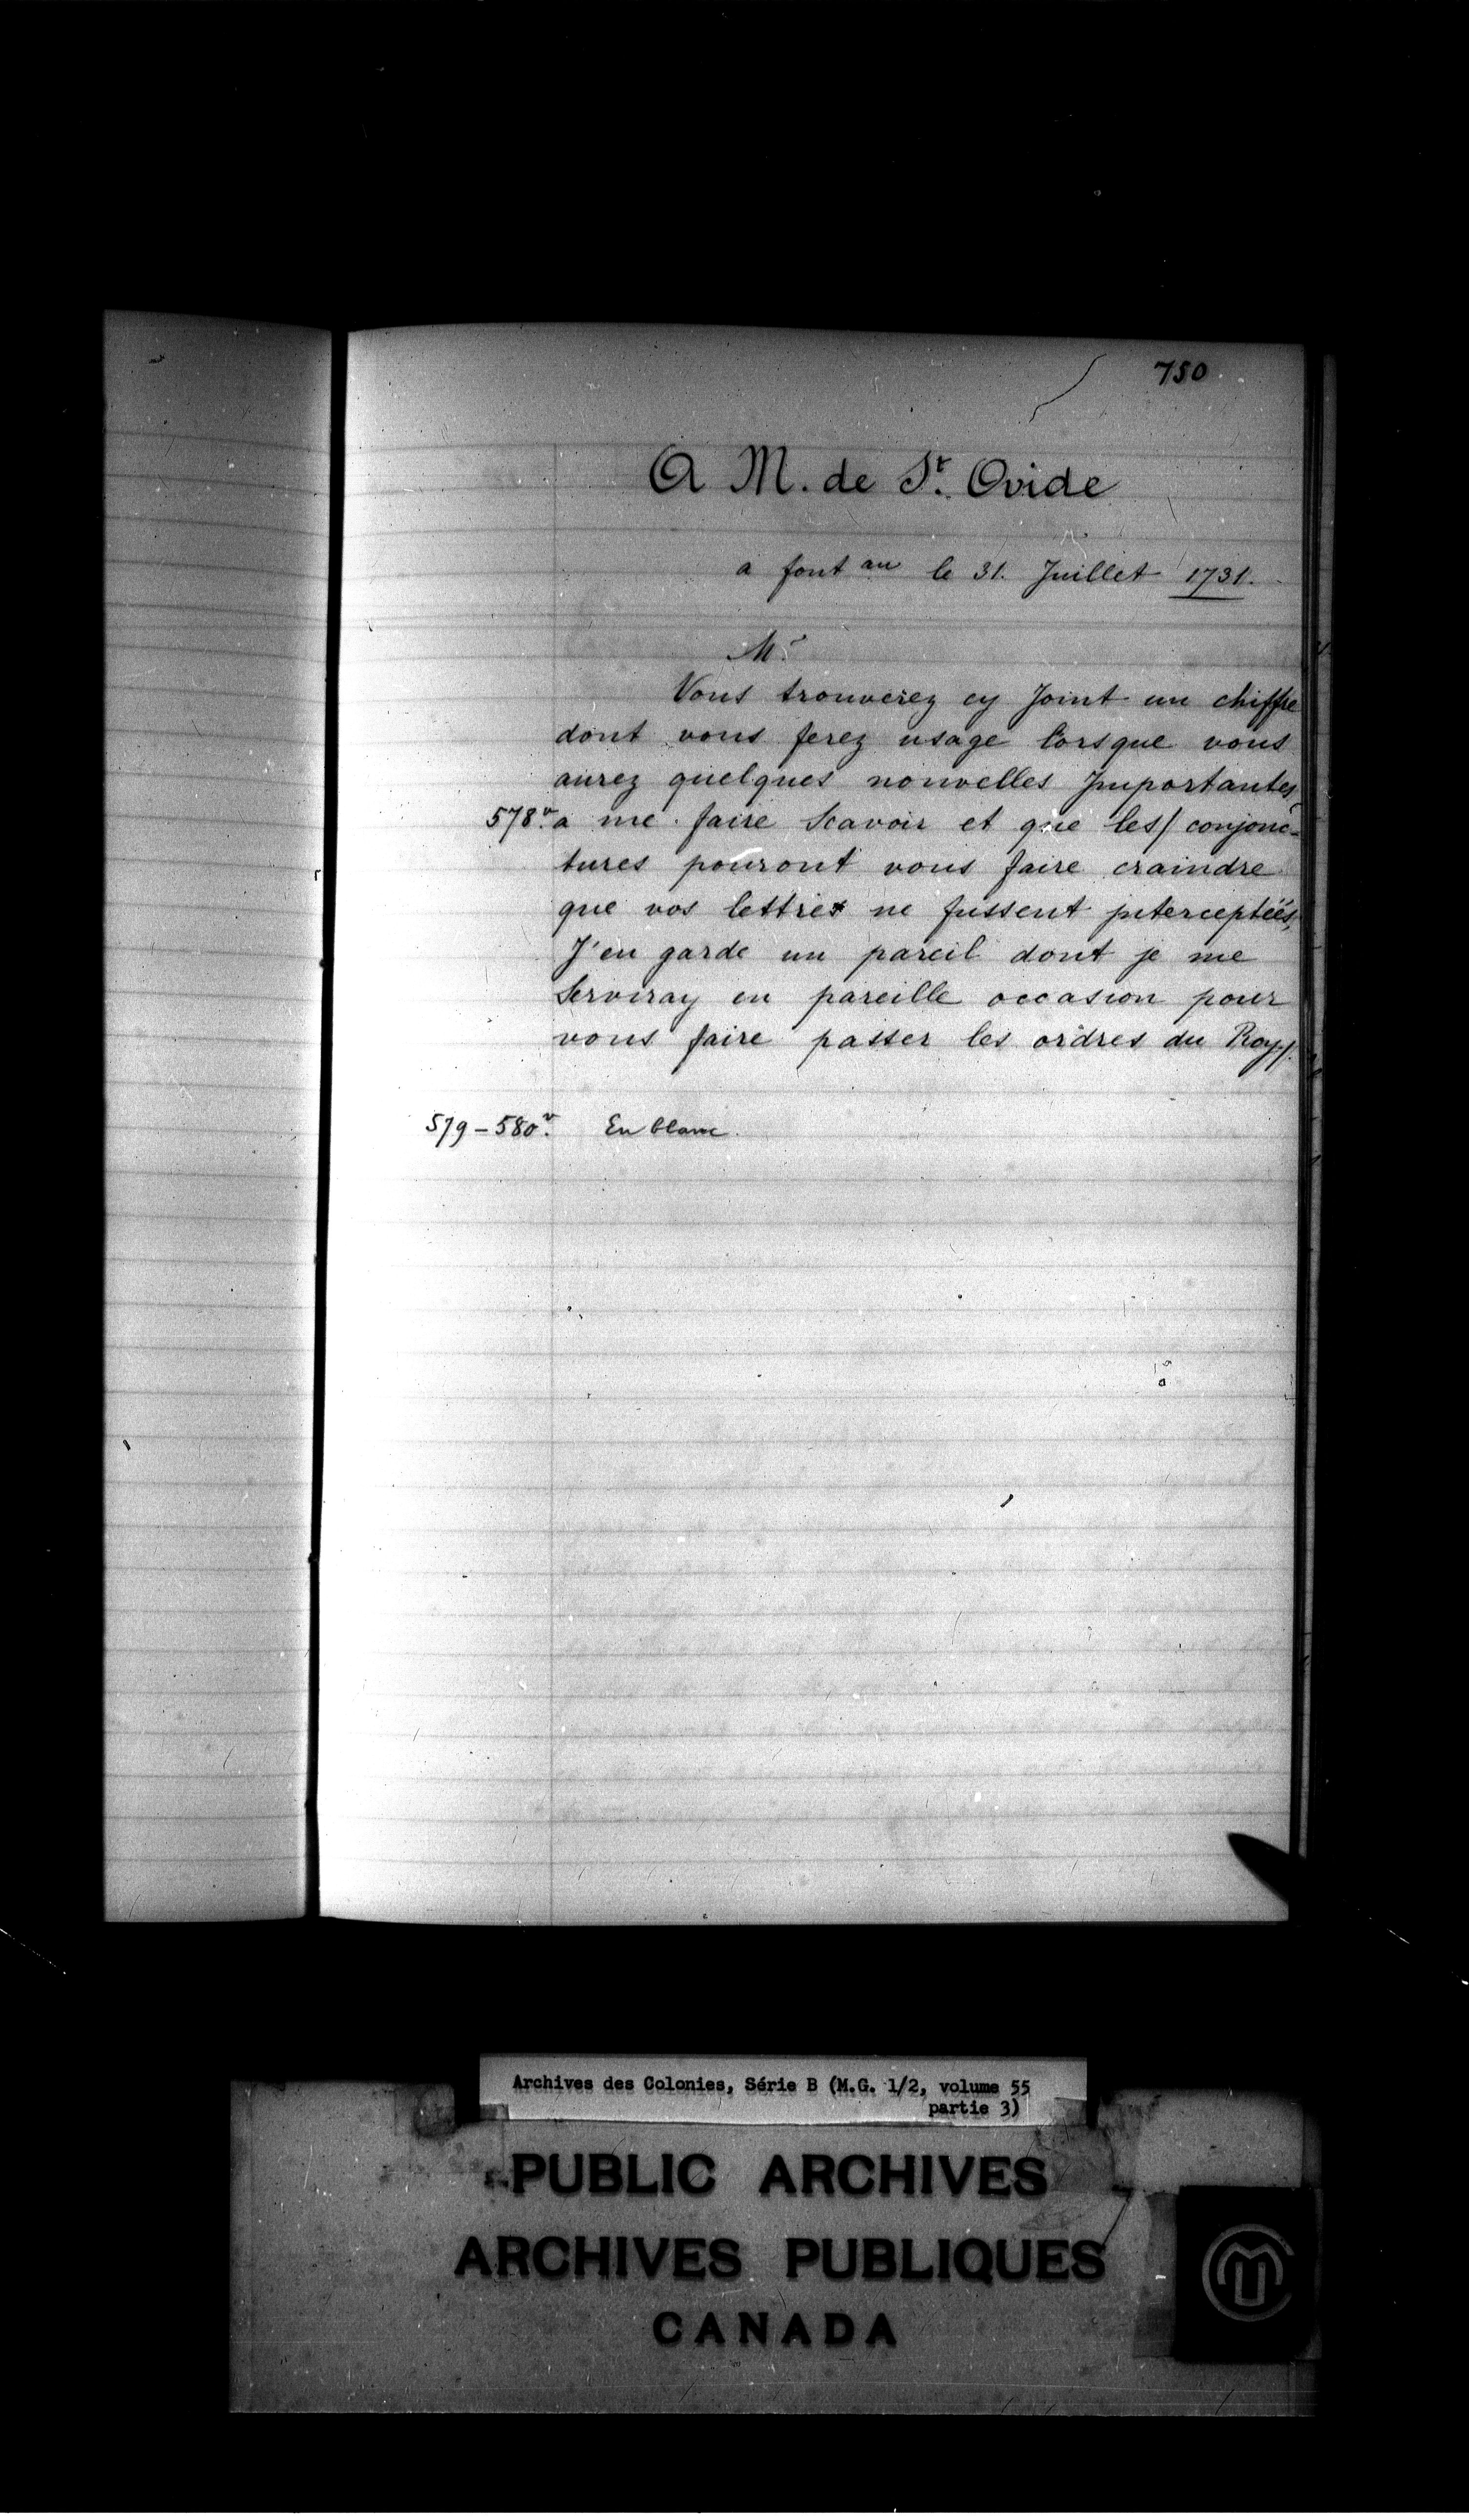 750
A M. de St. Ovide
a font au le 31. Juillet 1731.
Mr
Vous trouverez cy Joint un chiffre
dont vous ferez usage lorsque vous
aurez quelques nouvelles Importantes
578v. a me faire Scavoir et que les/ conjonc-
tures pouront vous faire craindre
que vos lettres ne fussent interceptées,
J'en garde un pareil dont je me
Serviray en pareille occasion pour
vous faire passer les ordres du Roy/.
579-580v. En blanc.
Archives des Colonies, Série B (M.G. 1/2, volume 55
partie 3)
PUBLIC ARCHIVES
ARCHIVES PUBLIQUES
CANADA